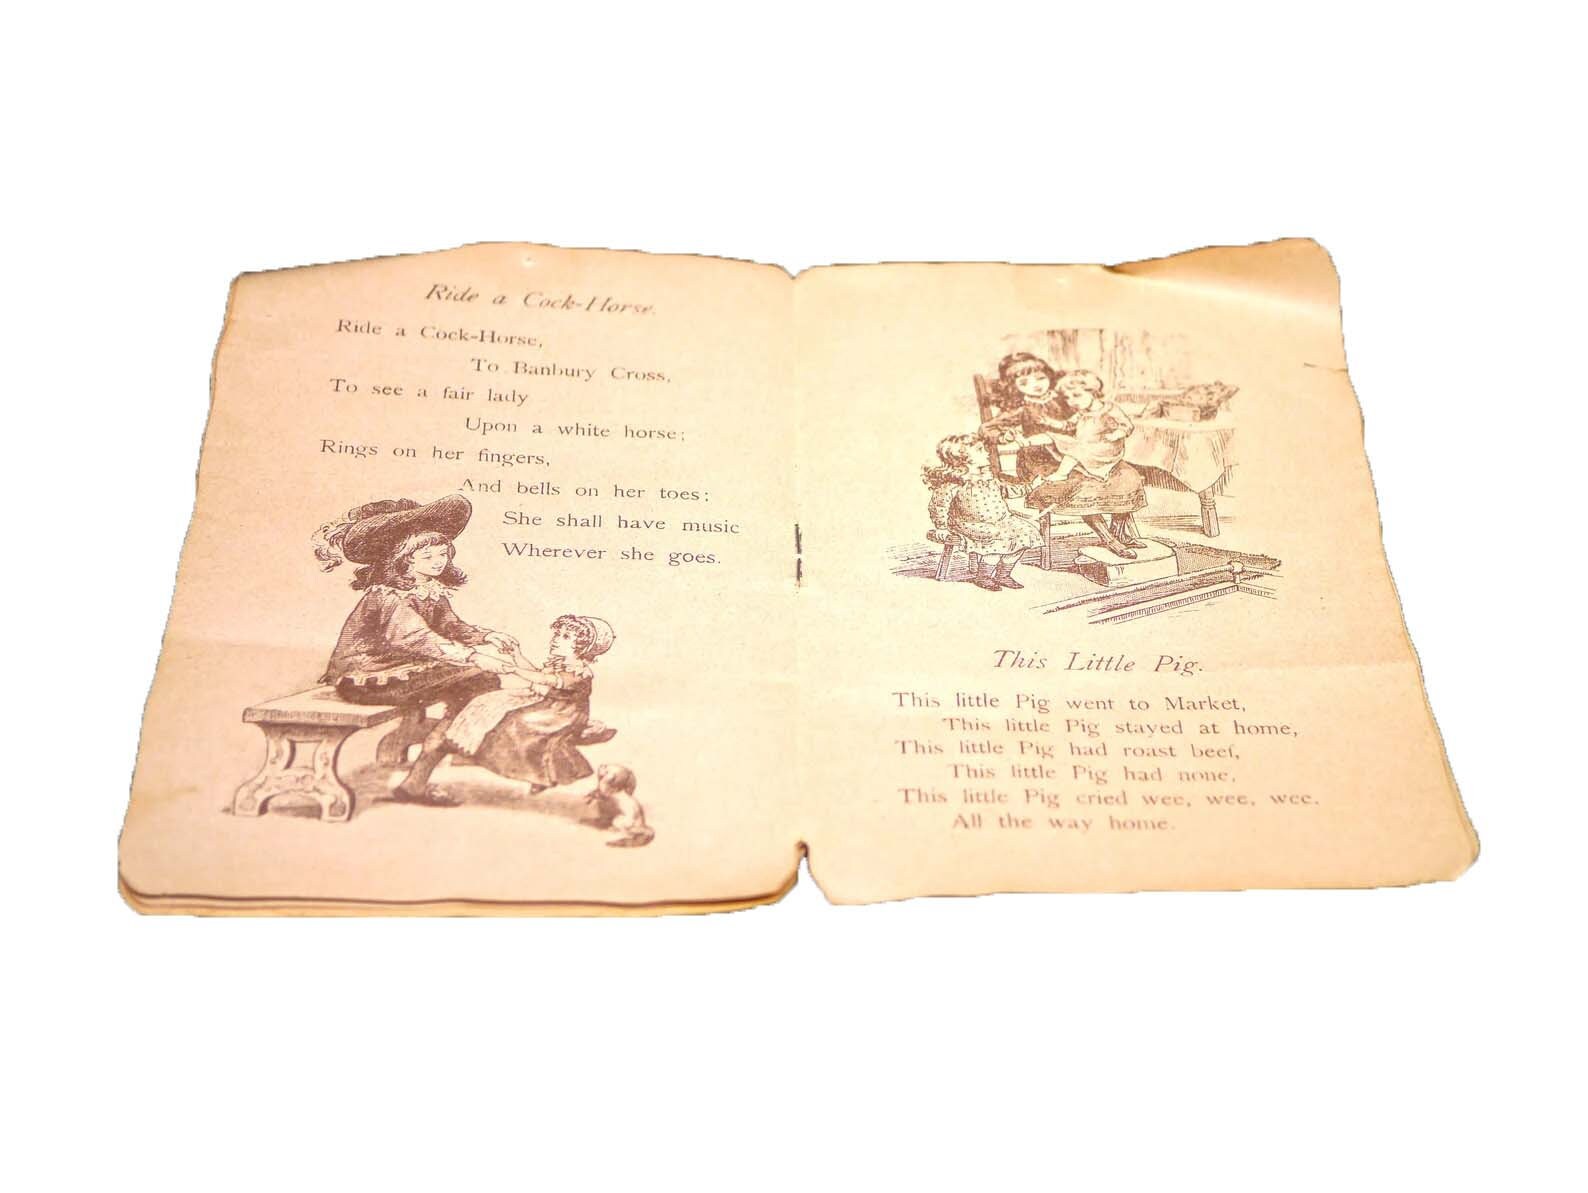 Ride a Cock-Horse.
Ride a Cock-Horse,
To Banbury Cross,
To see a fair lady
Upon a white horse;
Rings on her fingers,
And bells on her toes;
She shall have music
Wherever she goes.
This Little Pig.
This little Pig went to Market,
This little Pig stayed at home,
This little Pig had roast beef,
This little Pig had none,
This little Pig cried wee, wee, wee.
All the way home.